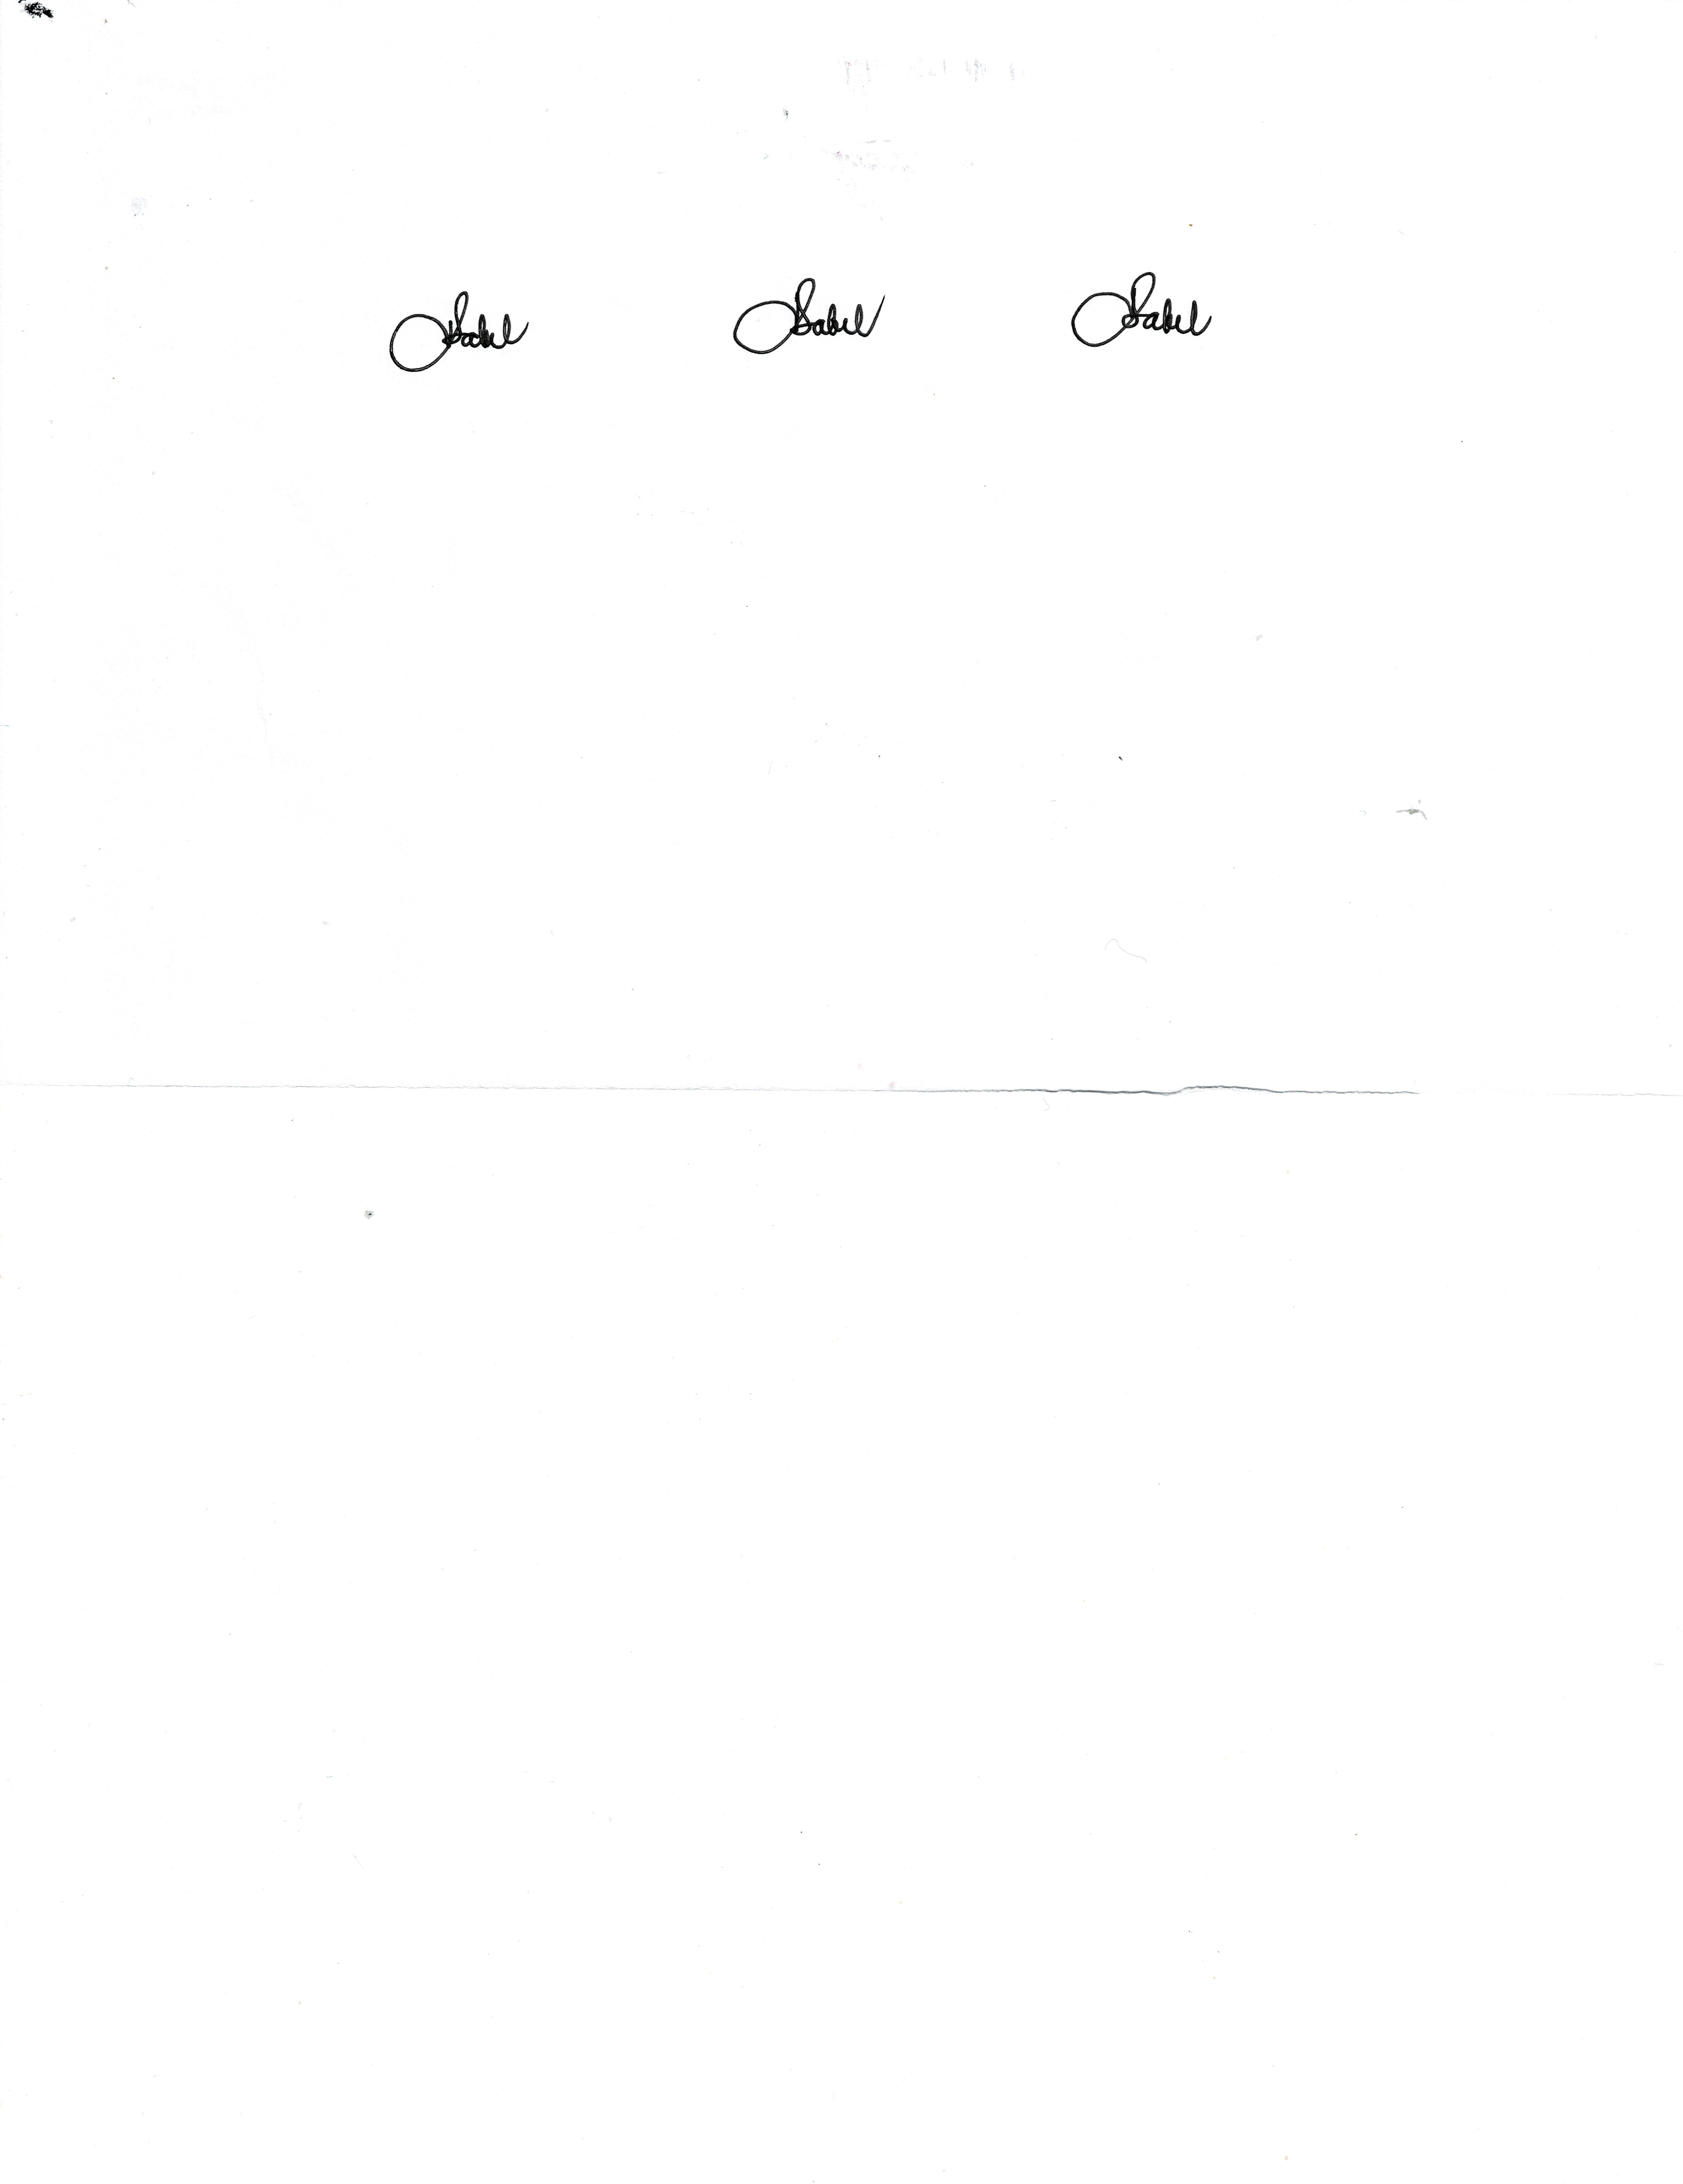 Isabel Isabel Isabel